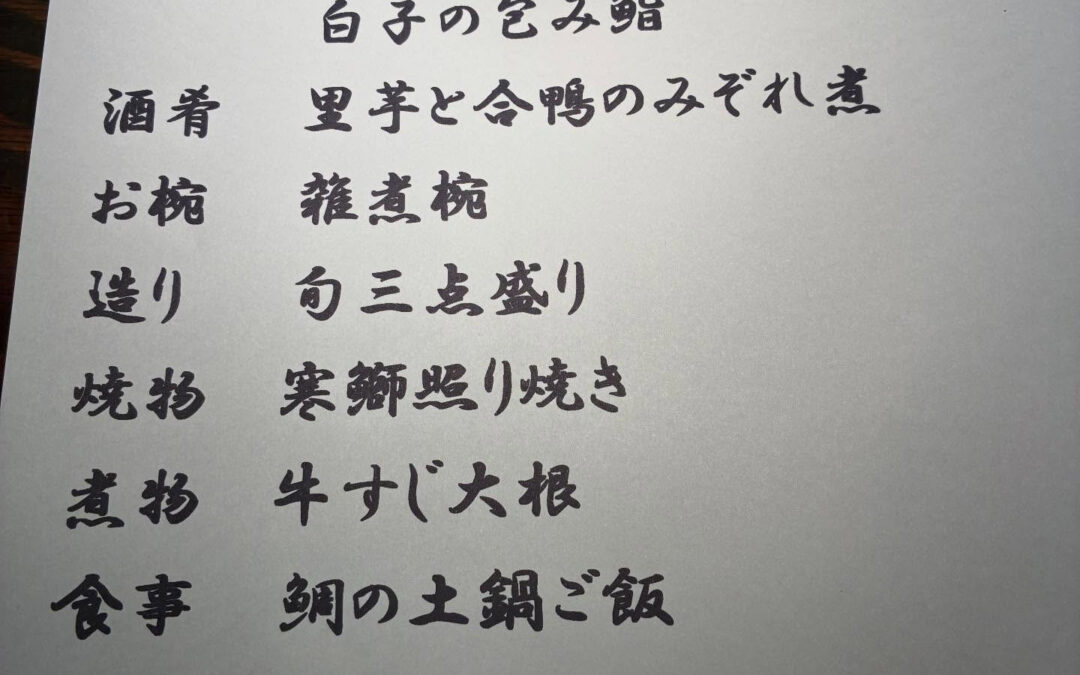 白子の包み鮨
酒肴 里芋と合鴨のみぞれ煮
お椀 雑煮椀
造り 旬三点盛り
焼物 寒鰤照り焼き
煮物 牛すじ大根
食事 鯛の土鍋ご飯